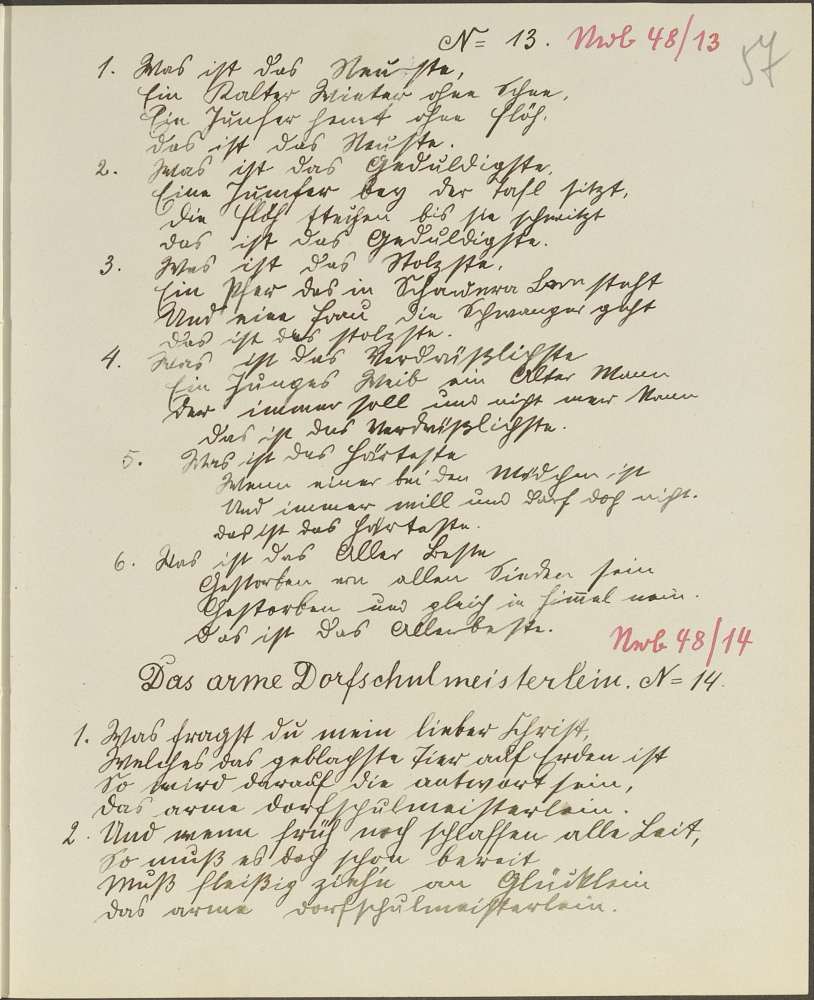 N= 13. Nwb 48/13
57
1. Was ist das Neuste,
Ein Kalter Winter ohne Schne,
Ein Junfer hemt ohne flöh.
das ist das Neuste.
2. Was ist das Geduldigste,
Eine Jumfer bey der tafl sitzt,
Die flöh steihen bis sie schwitzt
das ist das Geduldigste.
3. Was ist das Stolzste,
Ein Pfer das in steht
Und eine frau die Schwanger geht
das ist das stolzste.
4. Was ist das Verdrüßlichste
Ein Junges Weib ein Alter Mann
der immer soll und nicht mer kann
das ist das Verdrüßlichste.
5. Was ist das härteste
Wenn einer bei den Mädchen ist
Und immer will und darf doch nicht.
das ist das härteste.
6. Was ist das Aller Beste
Gestorben allen Sinden sein
Gestorben und gleich in himmel nein.
Das ist das Allerbeste.
Nwb 48/14
Das arme Dorfschulmeisterlein. N= 14.
1. Was fragst du mein lieber Christ,
Welches das geblachste Tier auf Erden ist
So wird darauf die antwort sein,
das arme dorfschulmeisterlein.
2. Und wenn früh noch schlaffen alle Leit,
So muß es doch schon bereit
Muß fleißig ziehn am Glücklein
das arme dorfschulmeisterlein.